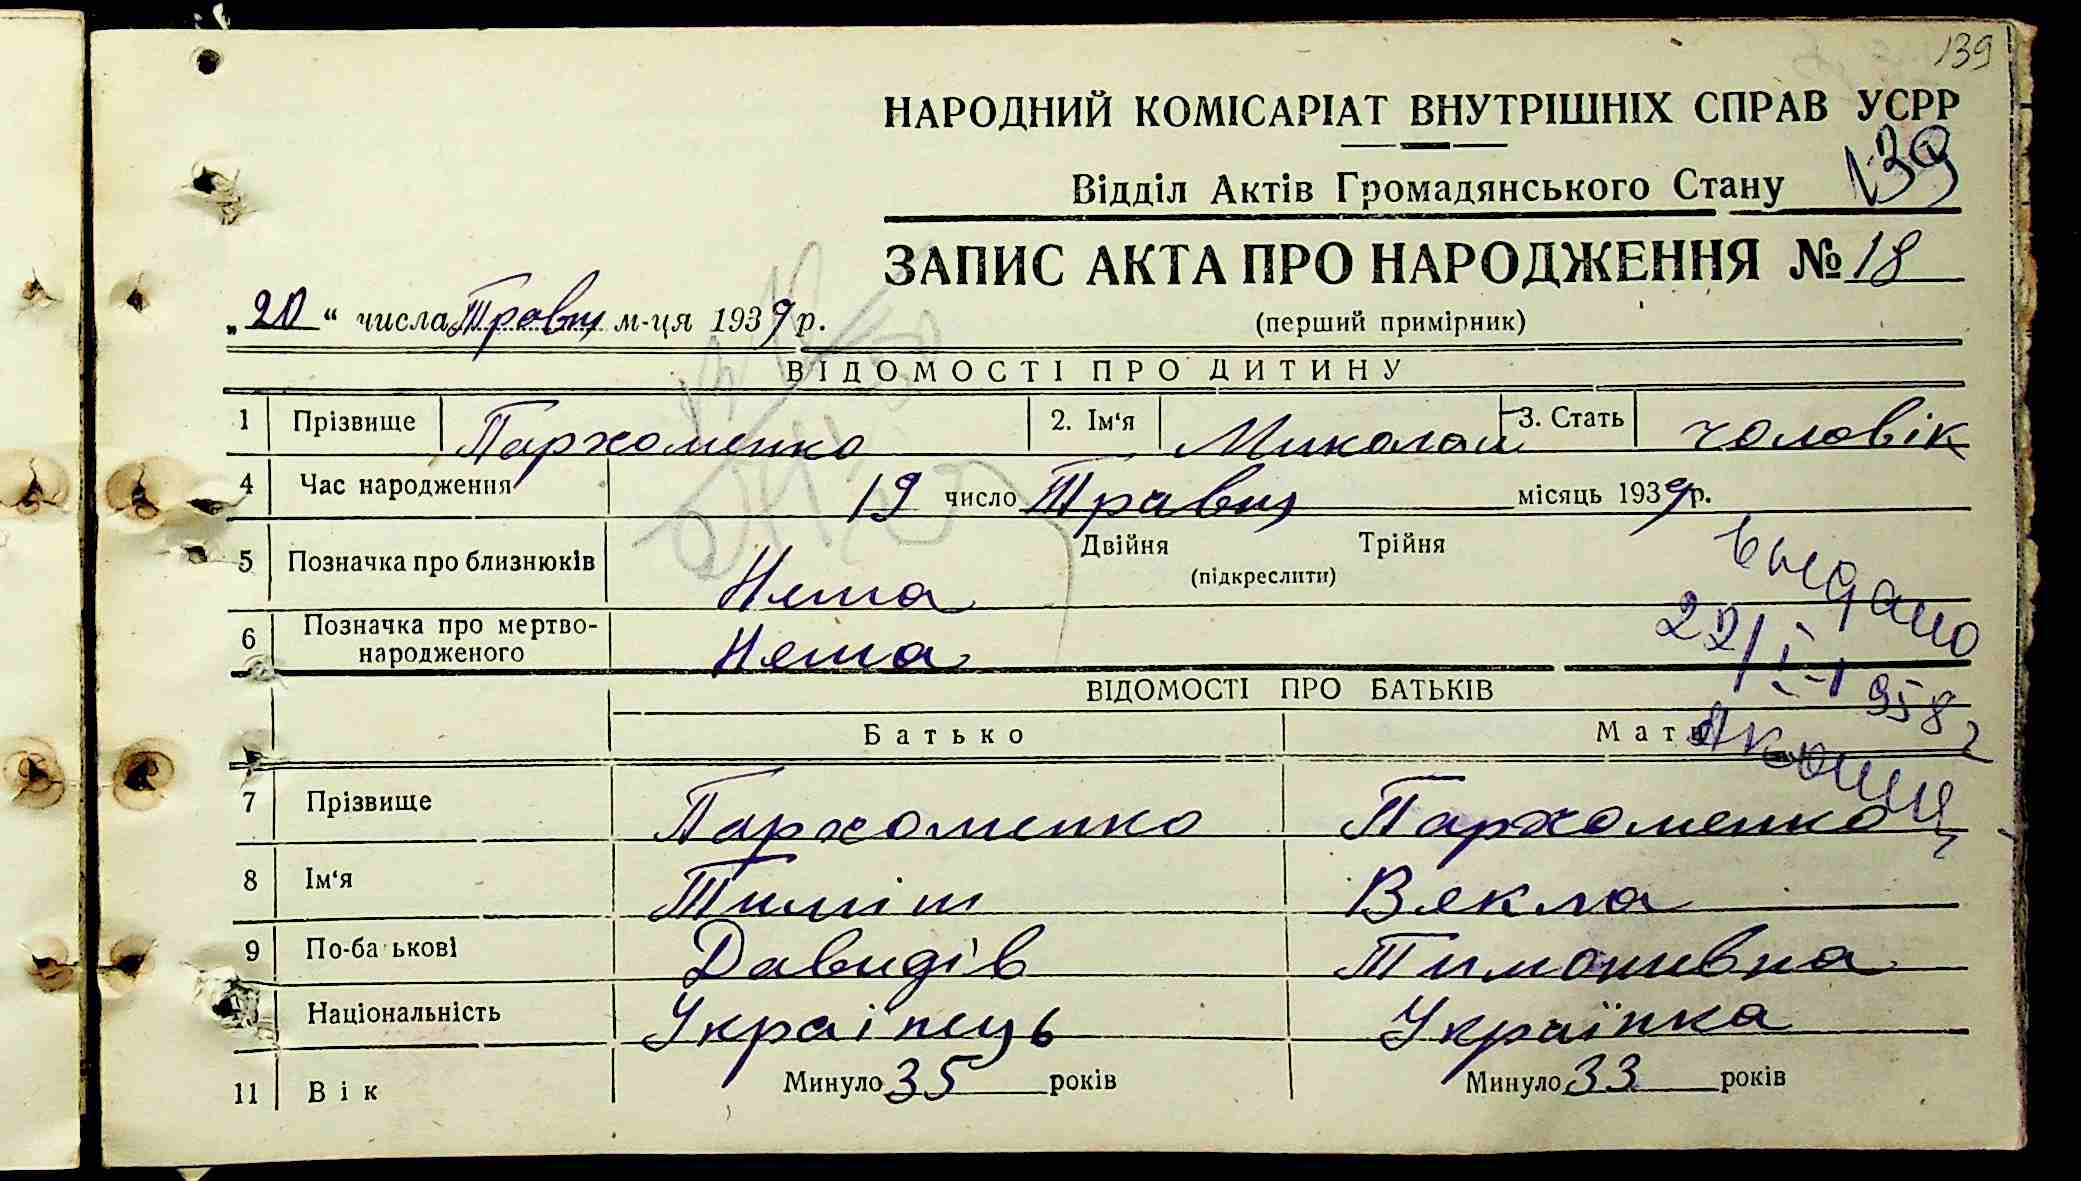 139
НАРОДНИЙ КОМІСАРІАТ ВНУТРІШНІХ СПРАВ УСРР
139
Відділ Актів Громадянського Стану
ЗАПИС АКТА ПРО НАРОДЖЕННЯ № 18
„20“ числа Травня м-ця 1939 р.
(перший примірник)
ВІДОМОСТІ ПРО ДИТИНУ
1 Прізвище Пархоменко 2. Ім'я Микола 3. Стать чоловік
4 Час народження 19 число Травня місяць 1939 р.
5 Позначка про близнюків Нема Двійня Трійня
(підкреслити)
6 Позначка про мертво-
народженого Нема
выдано
22/
1958 г
ВІДОМОСТІ ПРО БАТЬКІВ
Батько Мати
7 Прізвище Пархоменко Пархоменко
8 Ім'я Тиміш Векла
9 По-батькові Давидів Тимошивна
Національність Українець Українка
11 Вік Минуло 35 років Минуло 33 років